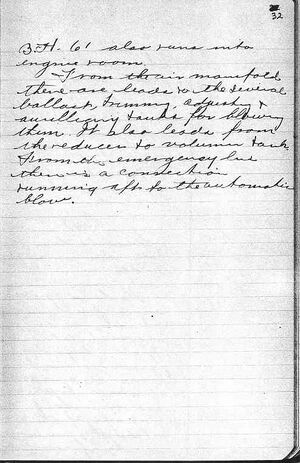 32
B.H. 61 also runs into
engine room.
From the air manifold
there are leads to the several
ballast, trimming, adjusting &
auxiliary tanks for blowing
them. It also leads from
the reducer to volume tank.
From the emergency line
there is a connection
running aft to the automatic
blow.